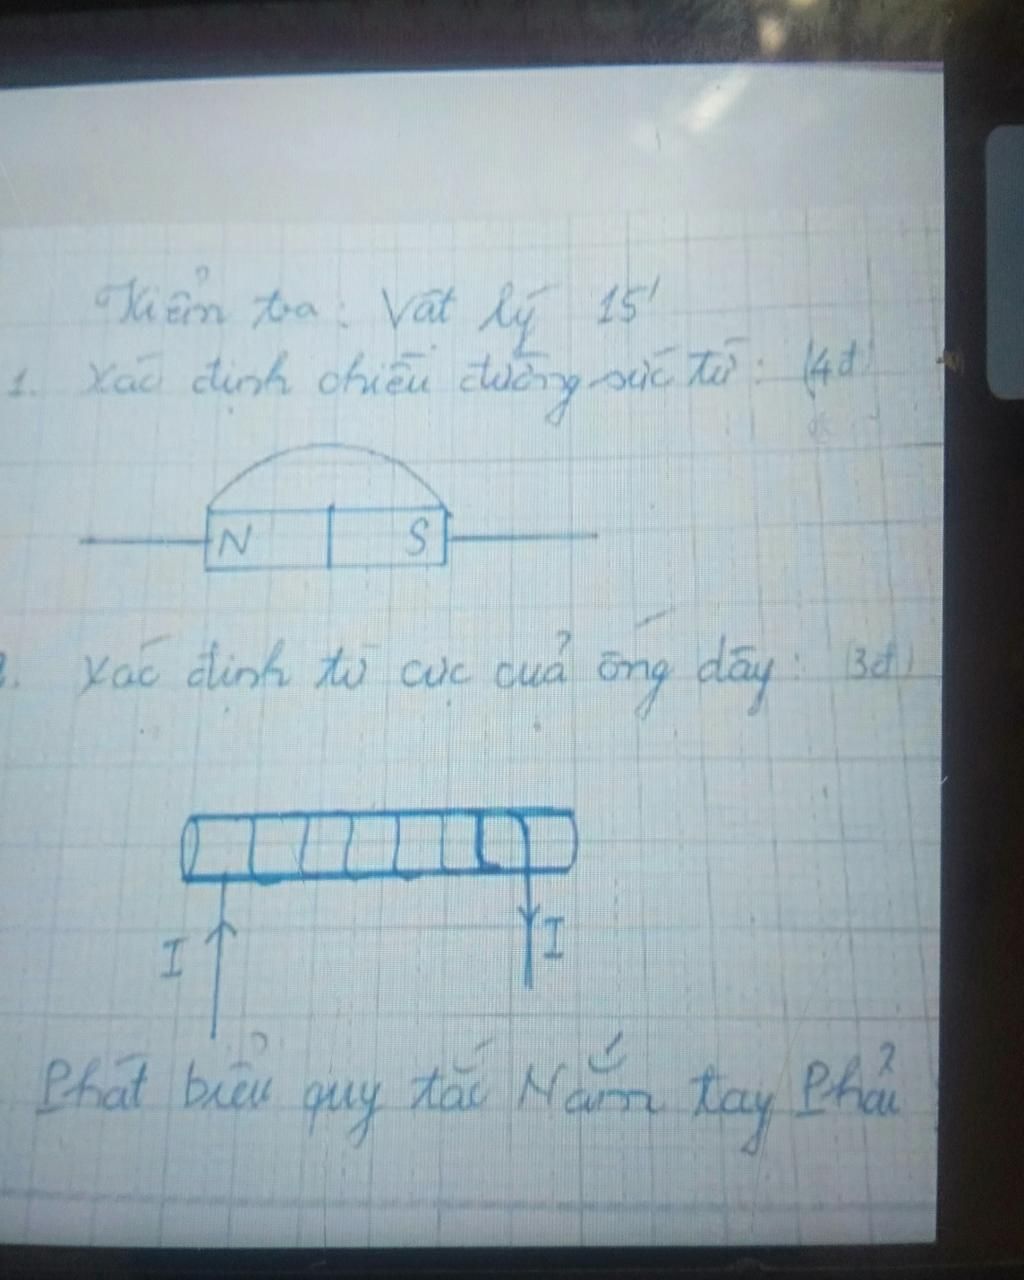 Kiểm tra: Vật lý 15'
1. Xác định chiều đường sức từ: (4đ)
N S
Xác định từ cực của ống dây: (3đ)
I I
Phát biểu quy tắc Nắm tay Phải